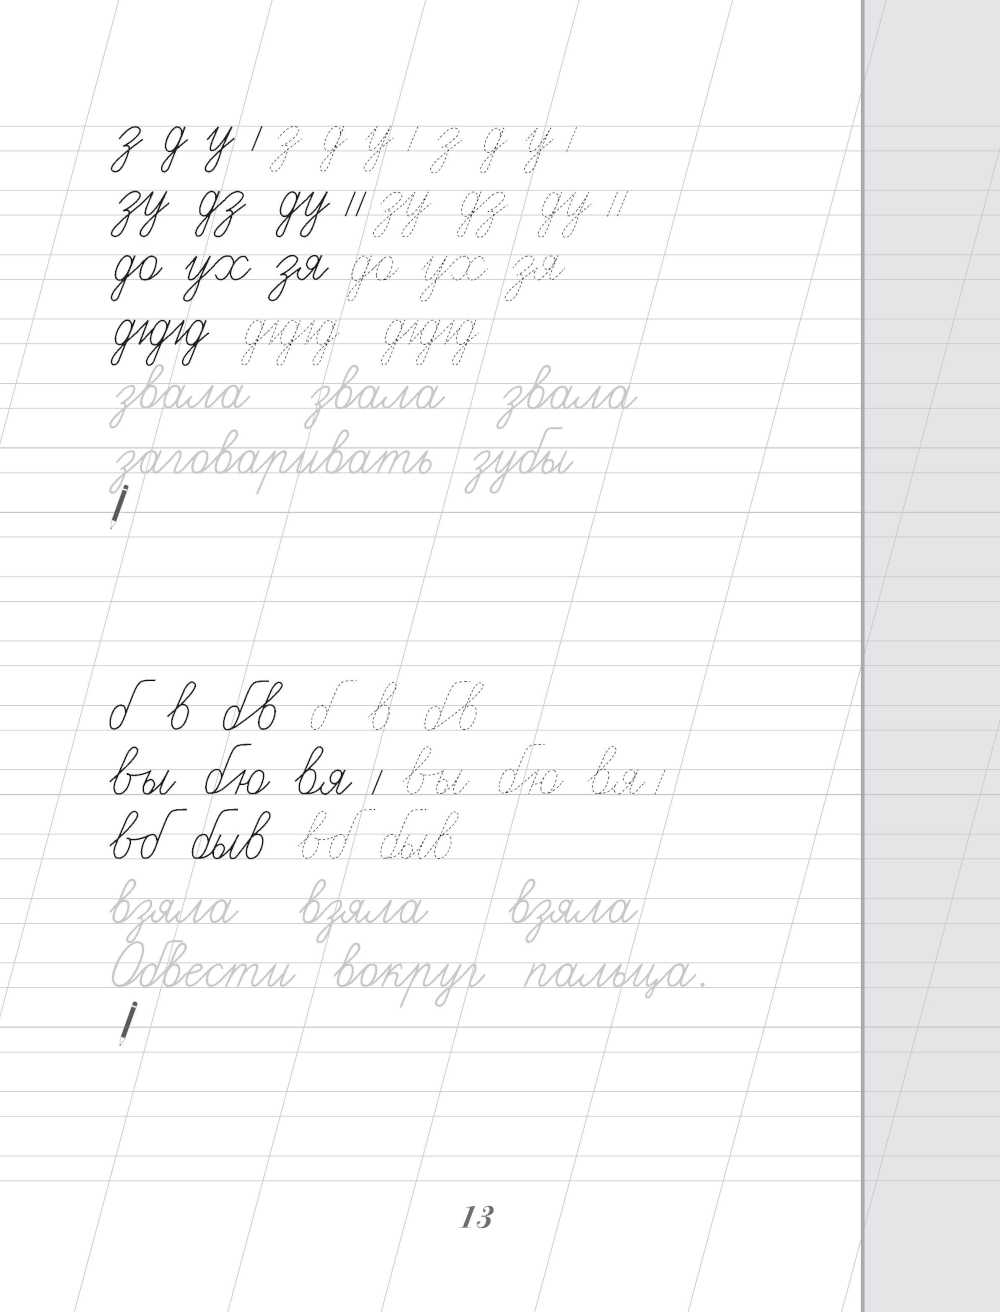 з д у / з д у / з д у /
зу дз ду // зу дз ду //
до ух зя до ух зя
дıдıд дıдıд дıдıд
звала звала звала
заговаривать зубы
б в бв б в бв
вы бю вя / вы бю вя /
вб быв вб быв
взяла взяла взяла
Обвести вокруг пальца.
13